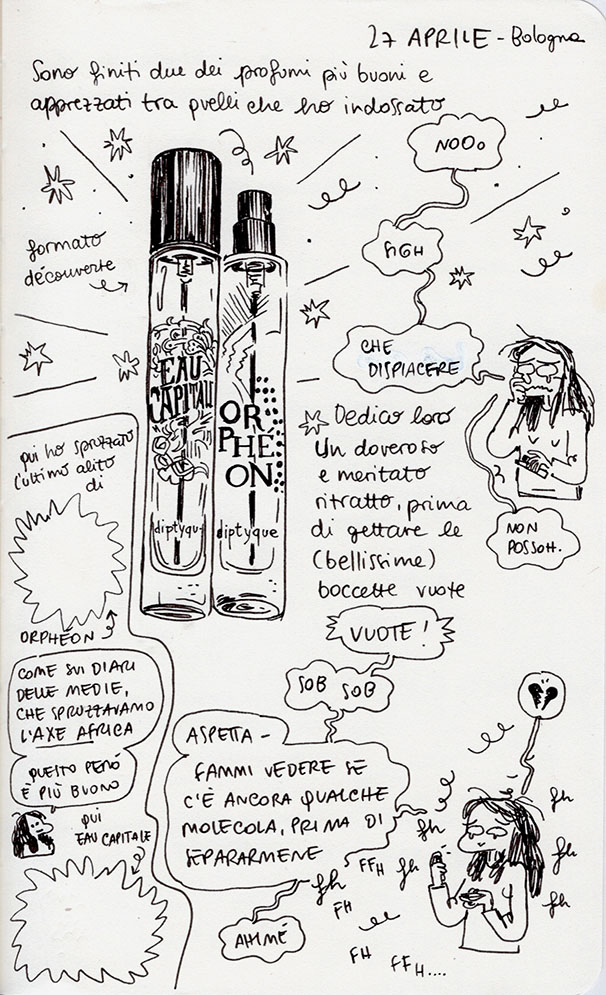 27 APRILE - Bologna
Sono finiti due dei profumi più buoni e
apprezzati tra quelli che ho indossato
NOOO
SIGH
CHE
DISPIACERE
NON
POSSOH.
formato
découverte
EAU
CAPITALE
diptyqu
OR
PHE
ON
diptyque
Dedico loro
un doveroso
e meritato
ritratto, prima
di gettare le
(bellissime)
boccette vuote
VUOTE!
SOB SOB
ASPETTA -
FAMMI VEDERE SE
C'È ANCORA QUALCHE
MOLECOLA, PRIMA DI
SEPARARMENE
AHIMÉ
qui ho spruzzato
l'ultimo alito
di
ORPHÉON
COME SUI DIARI
DELLE MEDIE,
CHE SPRUZZAVAMO
L'AXE AFRICA
QUESTO PERÒ
È PIÙ BUONO
QUI
EAU CAPITALE
fh
fh
fh
fh
fh
fh
FFH
FH
FH
FFH....